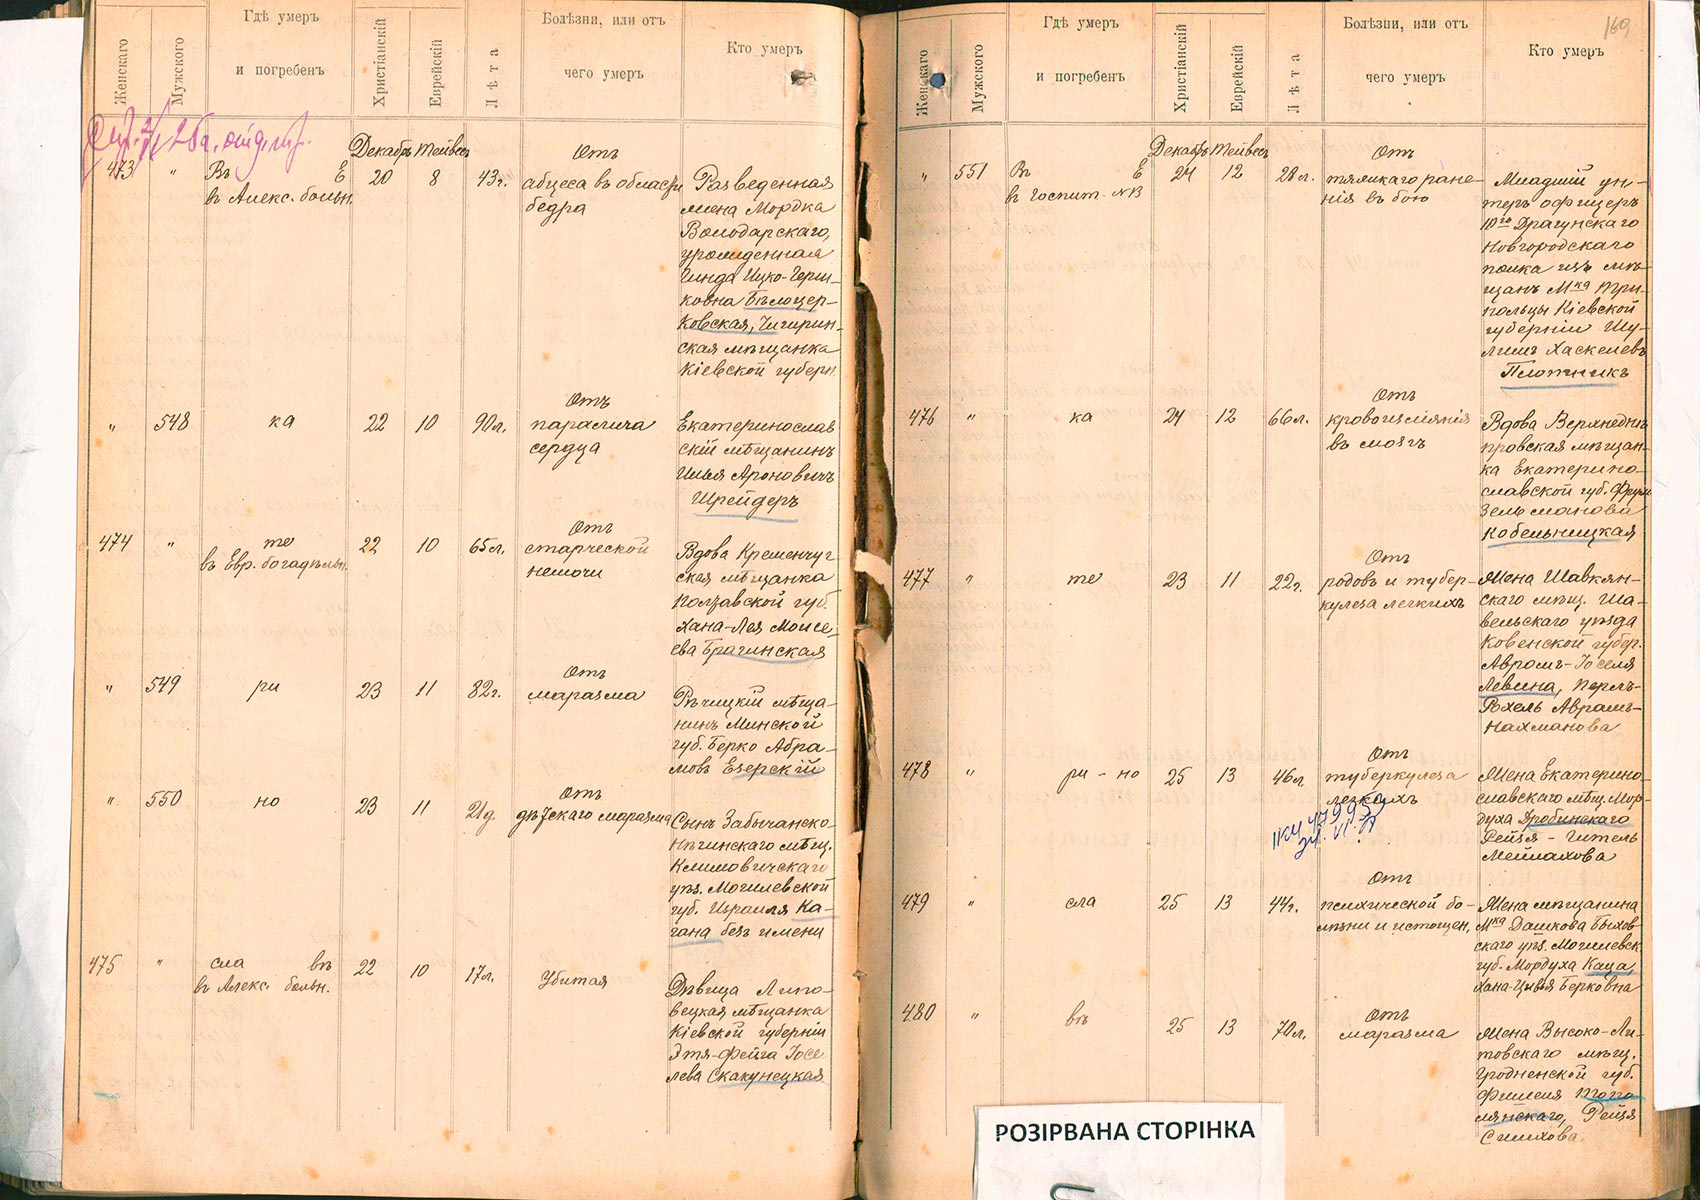 Женскаго
Мужскаго
Гдѣ умеръ
и погребенъ
Христіанскій
Еврейскій
Лѣта
Болѣзни, или отъ
чего умеръ
Кто умеръ
Декабрь Тейвесъ
473 " Въ Е 20 8 43г.
в Алекс. больн.
Отъ
абцеса въ области
бедра
Разведенная
жена Мордка
Володарскаго,
урожденная
Гинда Ицко-Герш-
ковна Бѣлоцер-
ковская, Чигирин-
ская мѣщанка
Кіевской губерн.
" 548 ка 22 10 90л.
Отъ
паралича
сердца
Екатеринослав
скій мѣщанинъ
Илья Ароновичъ
Шрейдеръ
474 " те 22 10 65л.
въ Евр. богадѣльн.
Отъ
старческой
немочи
Вдова Кременчуг-
ская мѣщанка
Полтавской губ.
Хана-Лея Моисе-
ева Брагинская
" 549 ри 23 11 82г.
Отъ
маразма
Рѣчицкій мѣща-
нинъ Минской
губ. Берко Абра-
мовъ Езерскій
" 550 но 23 11 21д.
Отъ
дѣтскаго маразма
Сынъ Забычанско-
Нѣгинскаго мѣщ.
Климовичскаго
уѣз. Могилевской
губ. Израиля Ка-
гана безъ имени
475 " сла въ 22 10 17л.
въ Алекс. больн.
Убитая
Дѣвица Липо-
вецкая мѣщанка
Кіевской губерніи
Этя-Фейга Іосе
лева Скакунецкая
169
Женскаго
Мужскаго
Гдѣ умеръ
и погребенъ
Христіанскій
Еврейскій
Лѣта
Болѣзни, или отъ
чего умеръ
Кто умеръ
Декабрь Тейвесъ
" 551 Въ Е 24 12 28л.
в госпит. №3
Отъ
тяжкаго ране-
нія въ бою
Младшій ун-
теръ офицеръ
10го Драгунскаго
Новгородскаго
полка изъ мѣ-
щанъ Мка Три-
польцы Кіевской
губерніи Шу-
лимъ Хаскелевъ
Плотникъ
476 " ка 24 12 66л.
Отъ
кровоизліянія
въ мозгъ
Вдова Верхнедне
провская мѣщан-
ка Екатерино-
славской губ. Фрума
Зельманова
Кобельницкая
477 " те 23 11 22г.
Отъ
родовъ и тубер-
кулеза легкихъ
Жена Шавкян-
скаго мѣщ. Ша-
вельскаго уѣзда
Ковенской губер.
Авромъ-Іоселя
Левина, Перлъ-
Рохель Авраамъ-
Нахманова
478 " ри-но 25 13 46л.
Отъ
туберкулеза
легкихъ
Жена Екатерино
славскаго мѣщ. Мор-
духа Дробинскаго
Рейзя-Гитель
Мейлахова
479 " сла 25 13 44г.
Отъ
психической бо-
лѣзни и истощен.
Жена мѣщанина
Мка Дашкова Быхов
скаго уѣз. Могилевск
губ. Мордуха Каца,
Хана-Цивья Берковна
480 " въ 25 13 70л.
Отъ
маразма
Жена Высоко-Ли-
товскаго мѣщ.
Гродненской губ.
Рейзя
РОЗІРВАНА СТОРІНКА